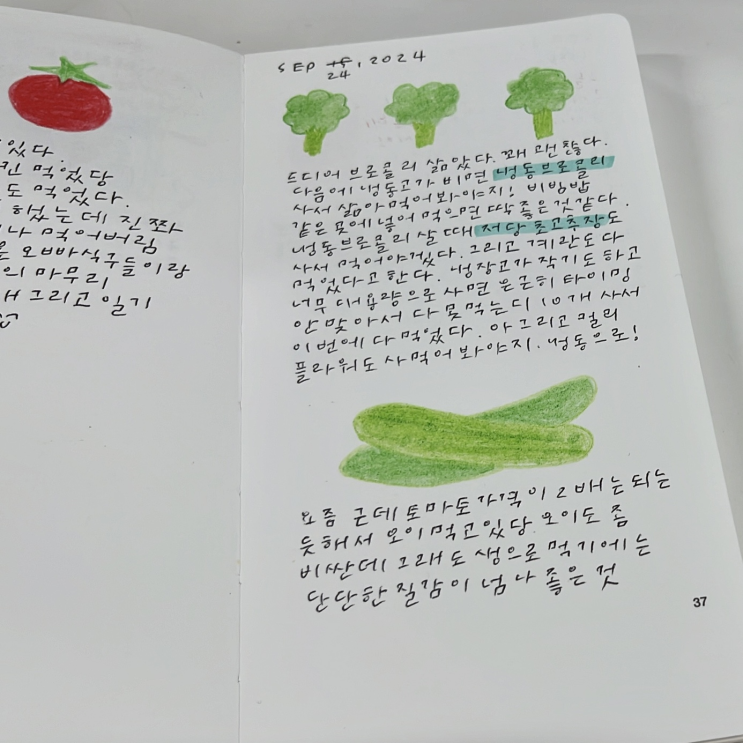 있다.
먹었당
도 먹었다.
했는데 진짜
나 먹어버림
오빠식구들이랑
의 마무리
그리고 일기
SEP 24, 2024
드디어 브로콜리 삶았다. 꽤 괜찮다.
다음에 냉동고가 비면 냉동브로콜리
사서 삶아먹어봐야지! 비빔밥
같은 곳에 넣어 먹으면 딱 좋은것같다.
냉동브로콜리 살 때 저당 초고추장도
사서 먹어야겠다. 그리고 계란도 다
먹었다고 한다. 냉장고가 작기도 하고
너무 대용량으로 사면 은근히 타이밍
안 맞아서 다 못먹는디 10개 사서
이번에 다 먹었다. 아 그리고 컬리
플라워도 사먹어 봐야지. 냉동으로!
요즘 근데 토마토가격이 2배는 되는
듯해서 오이먹고있당. 오이도 좀
비싼데 그래도 생으로 먹기에는
단단한 질감이 넘나 좋은 것
37